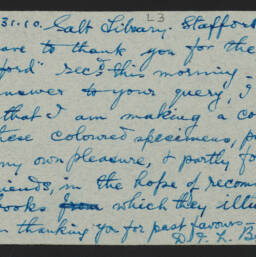 L3
31.10. Salt Library. Stafford
are to thank you for the
ford" rec.d this morning -
answer to your query, I
that I am making a co
these coloured specimens, p
my own pleasure, & partly fo
iends, in the hope of recom
books from which they illu
n thanking you for past favours -
D. F. L. B